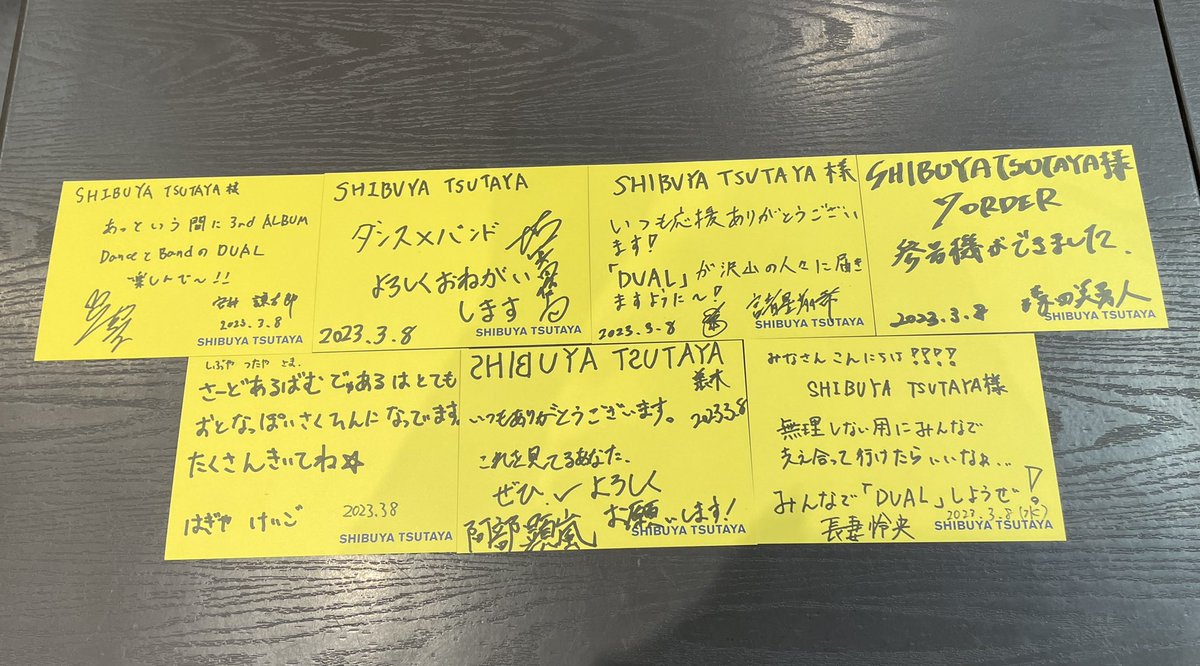 SHIBUYA TSUTAYA 様
あっという間に 3rd ALBUM
DanceとBandのDUAL
楽しんで〜!!
安井 謙太郎
2023.3.8
SHIBUYA TSUTAYA
SHIBUYA TSUTAYA
ダンス×バンド
よろしくおねがい
します
2023.3.8
SHIBUYA TSUTAYA
SHIBUYA TSUTAYA 様
いつも応援ありがとうござい
ます!
「DUAL」が沢山の人々に届き
ますように〜!
2023.3.8
SHIBUYA TSUTAYA
SHIBUYATSUTAYA様
7ORDER
参号機ができました.
2023.3.8
SHIBUYA TSUTAYA
しぶや つたや さま
さーどあるばむ でゅある は とても
おとなっぽいさくひんになってます。
たくさんきいてね☆
はぎや けいご
2023.3.8
SHIBUYA TSUTAYA
SHIBUYA TSUTAYA
いつもありがとうございます。
2023.3.8
これを見てるあなた、
ぜひ、よろしく
お願いします!
阿部顕嵐
SHIBUYA TSUTAYA
みなさんこんにちは!!!!
SHIBUYA TSUTAYA様
無理しない用にみんなで
支え合って行けたらいいなぁ...
みんなで「DUAL」しようぜ!
2023.3.8(水)
長妻怜央
SHIBUYA TSUTAYA